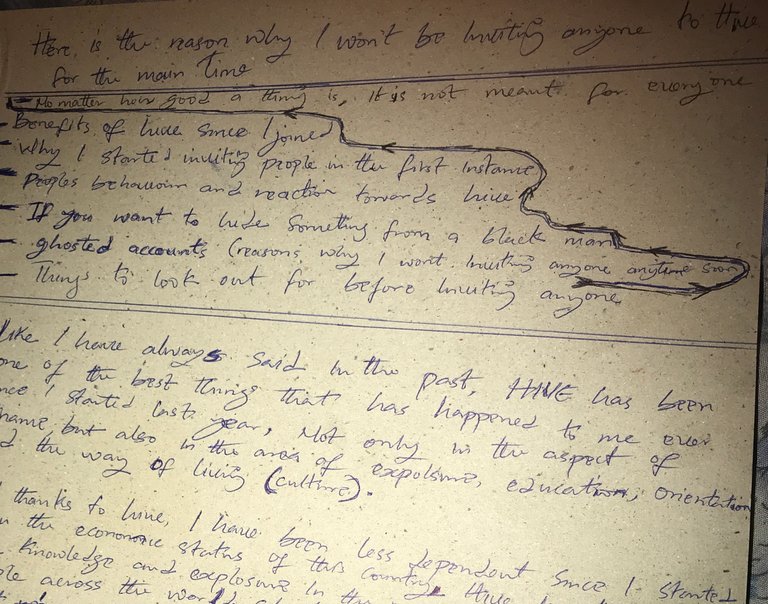 Here is the reason why I won't be inviting anyone to Hive
for the main time
- No matter how good a thing is, it is not meant for everyone
- Benefits of hive since I joined
- Why I started inviting people in the first instance
- Peoples behaviour and reaction towards hive
- If you want to hide something from a black man
- ghosted accounts (reasons why I won't inviting anyone anytime soon)
- Things to look out for before inviting anyone
like I have always said in the past, HIVE has been
one of the best things that has happened to me ever
since I started last year, Not only in the aspect of
but also in the area of expolsure, education, orientation
the way of living (culture).
thanks to hive, I have been less dependent since I started
the economic status of this country. Hive
knowledge and explosure in the
across the world